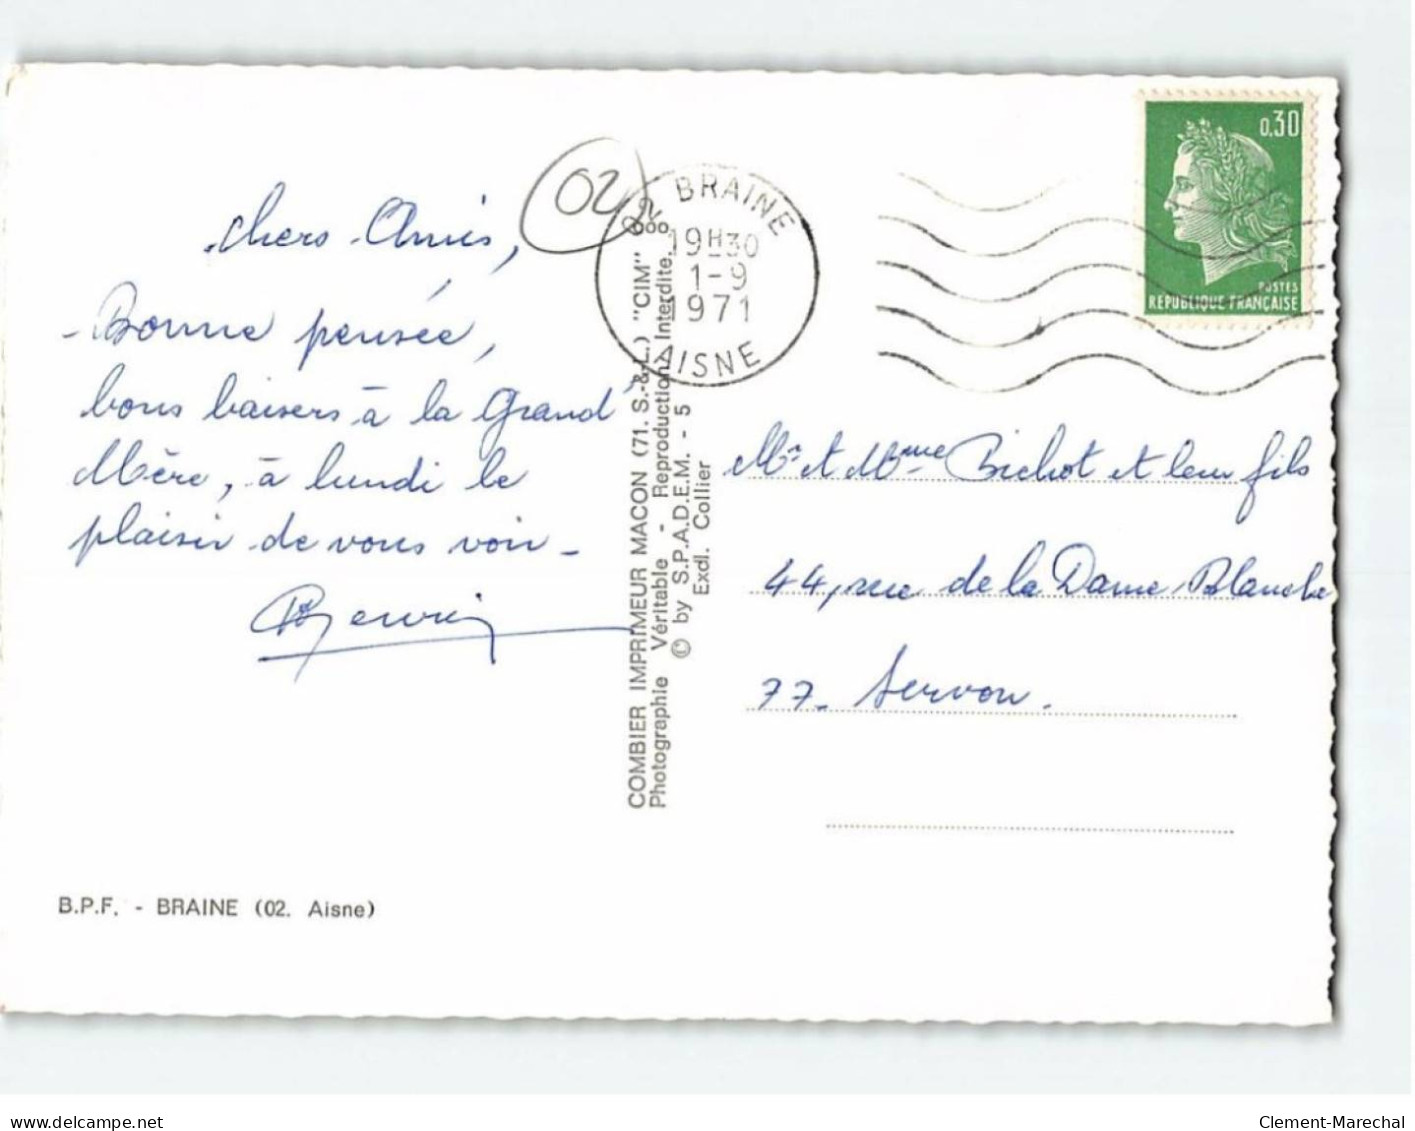 Chers Amis,
Bonne pensée,
bons baisers à la Grand
Mère, à lundi le
plaisir de vous voir -
02
02 BRAINE
19H30
1-9
1971
AISNE
0,30
POSTES
REPUBLIQUE FRANÇAISE
COMBIER IMPRIMEUR MACON (71. S.-&-L.) "CIM"
Photographie Véritable - Reproduction Interdite.
© by S.P.A.D.E.M. - 5
Exdl. Collier
Mr et Mme Bichot et leur fils
44, rue de la Dame Blanche
77. Servon.
B.P.F. - BRAINE (02. Aisne)
Clement-Marechal